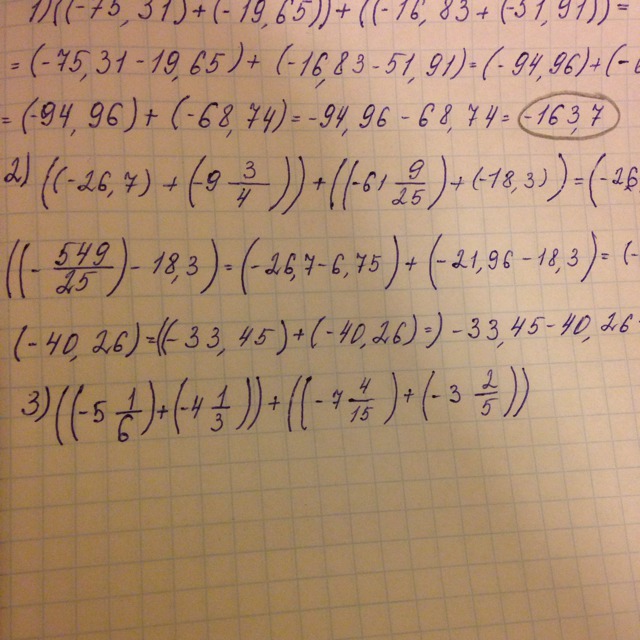 1) ((-75,31) + (-19,65)) + ((-16,83 + (-31,91)) =
= (-75,31 - 19,65) + (-16,83 - 51,91) = (-94,96) + (-6
= (-94,96) + (-68,74) = -94,96 - 68,74 = -163,7
2) ((-26,7) + (-9 3/4)) + ((-61 9/25) + (-18,3)) = (-26
((-549/25) - 18,3) = (-26,7 - 6,75) + (-21,96 - 18,3) = (-
(-40,26) = ((-33,45) + (-40,26) =) - 33,45 - 40,26
3) ((-5 1/6) + (-4 1/3)) + ((-7 4/15) + (-3 2/5))